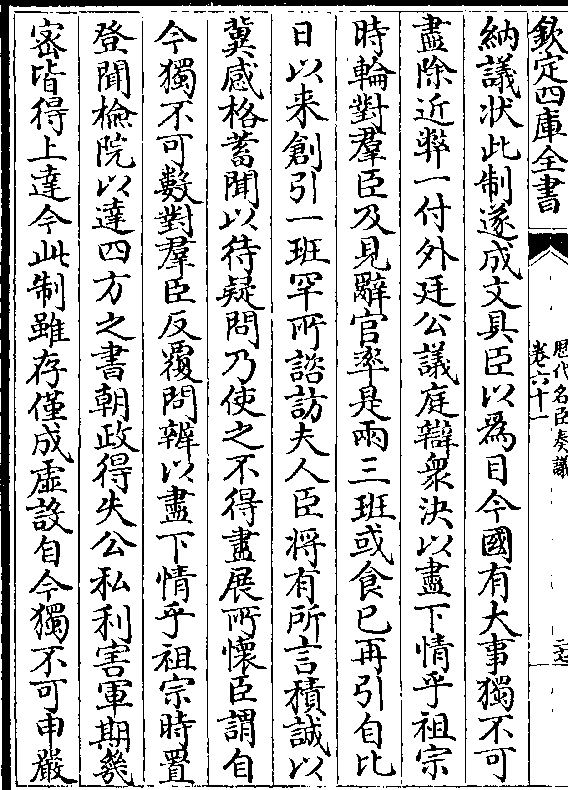 欽定四庫全書
歴代名臣奏議
卷六十一
納議狀此制遂成文具臣以為目今國有大事獨不可
盡除近弊一付外廷公議庭辯衆決以盡下情乎祖宗
時輪對羣臣及見辭官率是兩三班或食已再引自比
日以来創引一班罕所諮訪夫人臣將有所言積誠以
冀感格蓄聞以待疑問乃使之不得盡展所懷臣謂自
今獨不可數對羣臣反覆問辨以盡下情乎祖宗時置
登聞檢院以達四方之書朝政得失公私利害軍期幾
密皆得上達今此制雖存僅成虛設自今獨不可申嚴